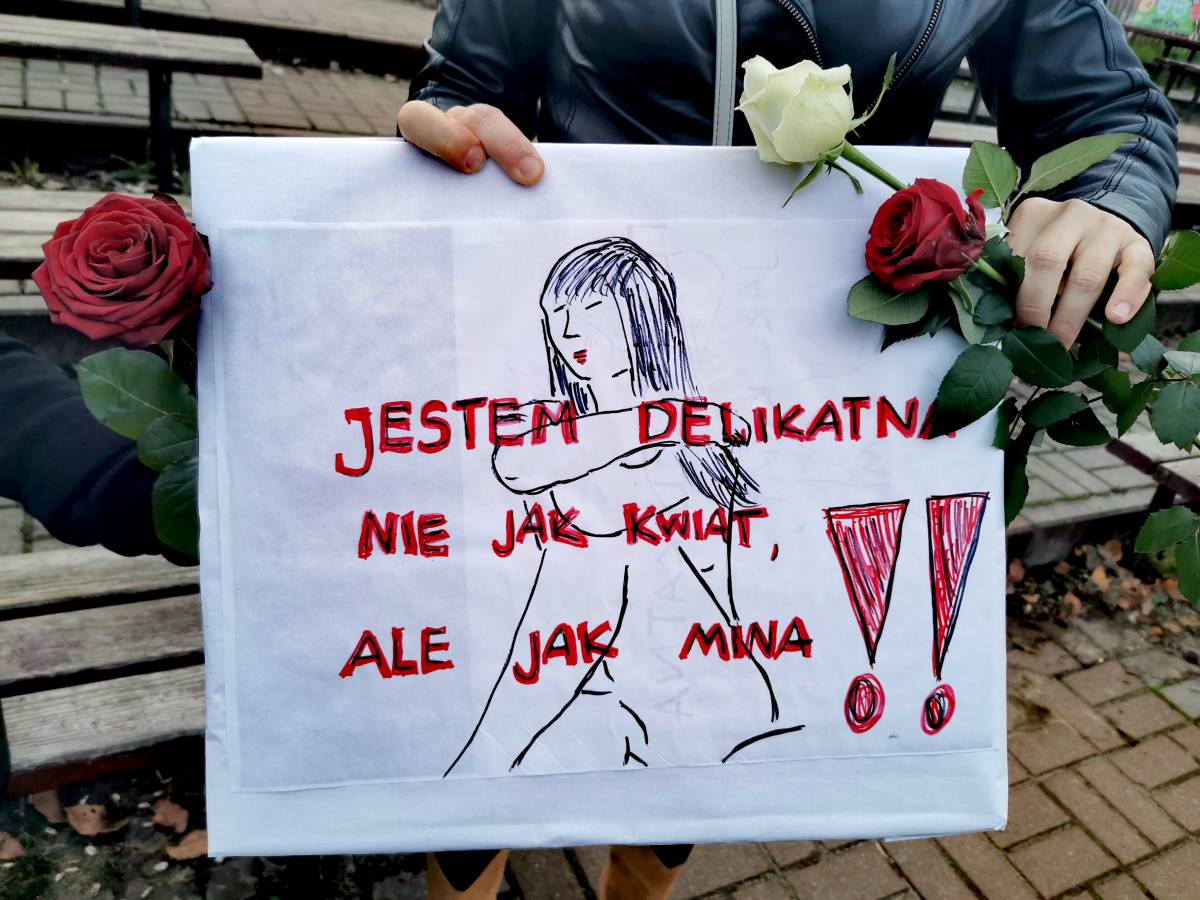 JESTEM DELIKATNA
NIE JAK KWIAT,
ALE JAK MINA !!